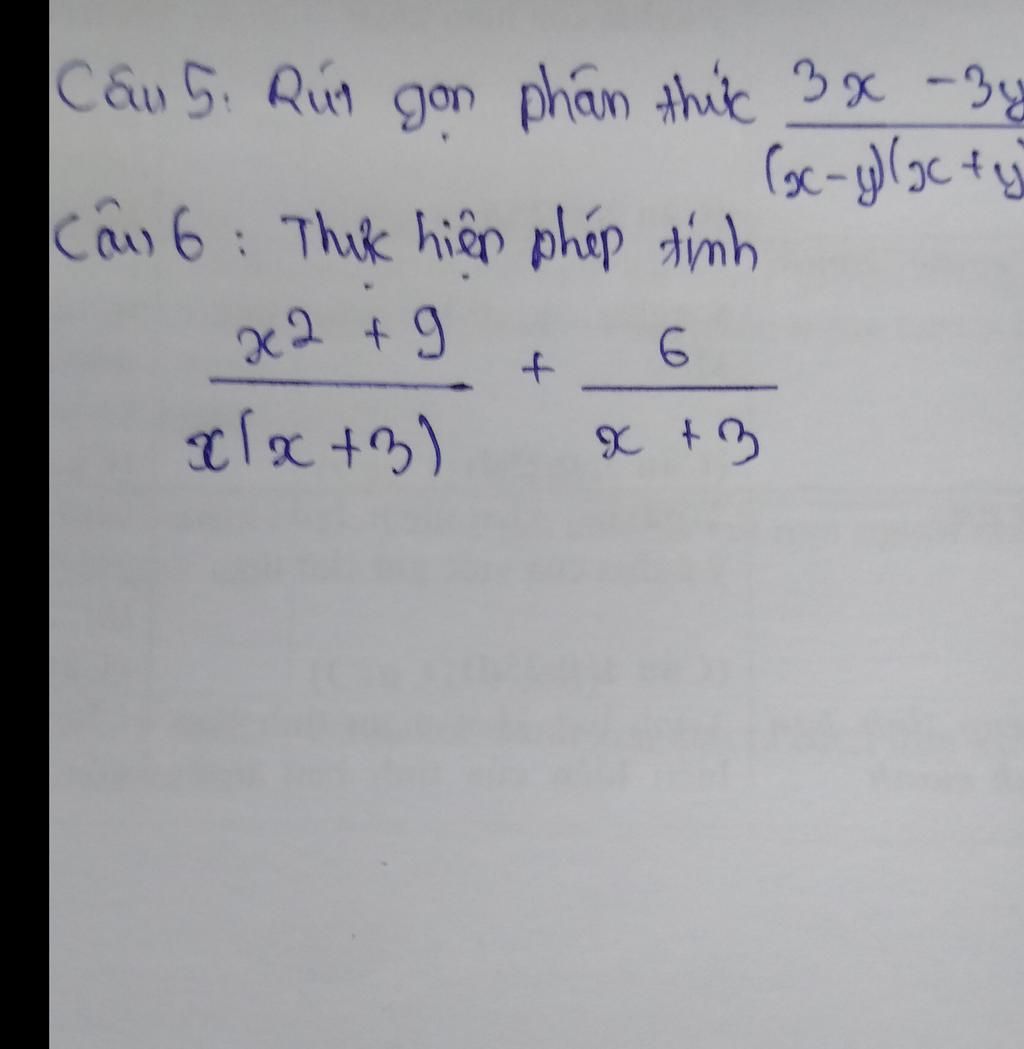 Câu 5: Rút gọn phân thức 3x - 3y
(x-y)(x+y)
Câu 6: Thực hiện phép tính
x2 + 9 + 6
x(x+3) x + 3